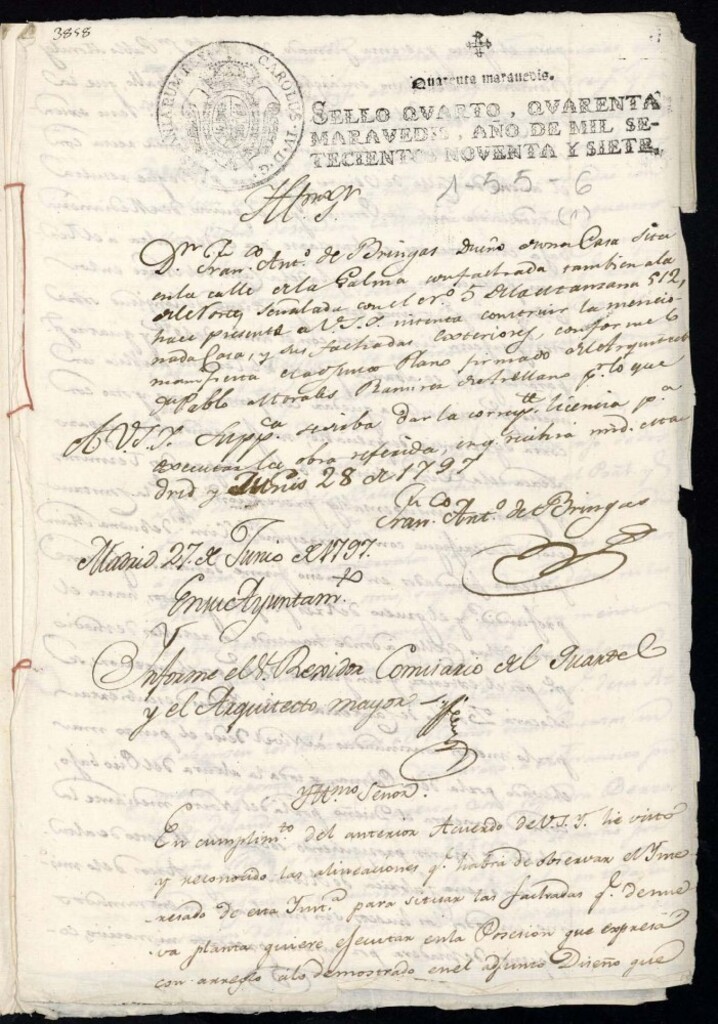 3858
CAROLUS IV D. G.
Quarenta maravedis.
SELLO QVARTO, QVARENTA
MARAVEDIS, AÑO DE MIL SE-
TECIENTOS NOVENTA Y SIETE.
1-55-6
(1)
Yllmo. Sr.
Dn. Franco. Anto. de Bringas Dueño de una Casa sita
en la calle de la Palma con fachada tambien a la
de    señalada con el no. 5 de la Manzana 512,
hace presente a V.S.Y. intenta construir la mencio-
nada Casa, y sus fachadas exteriores, conforme lo
manifiesta el adjunto Plano firmado del Arquitecto
Dn. Pablo Morales Ramirez de Arellano pr. lo que
A V.S.Y. Suppca. se sirba dar la correspte. licencia pa.
executar la obra referida, en q. recibirá md. Ma-
drid y Junio 28 de 1797
Franco. Anto. de Bringas
Madrid 27 de Junio de 1797.
En su Ayuntamto.
Informe el Sr. Rexidor Comisario del Quartel
y el Arquitecto mayor
Yllmo. Señor.
En cumplimto. del anterior Acuerdo de V.S.Y. he visto
y reconocido las alineaciones q. habrá de observar el Ynte
resado de esta Ynsta. para situar las fachadas q. de nue
va planta quiere ejecutar en la Posesion que expresa
con arreglo a lo demostrado en el adjunto Diseño que